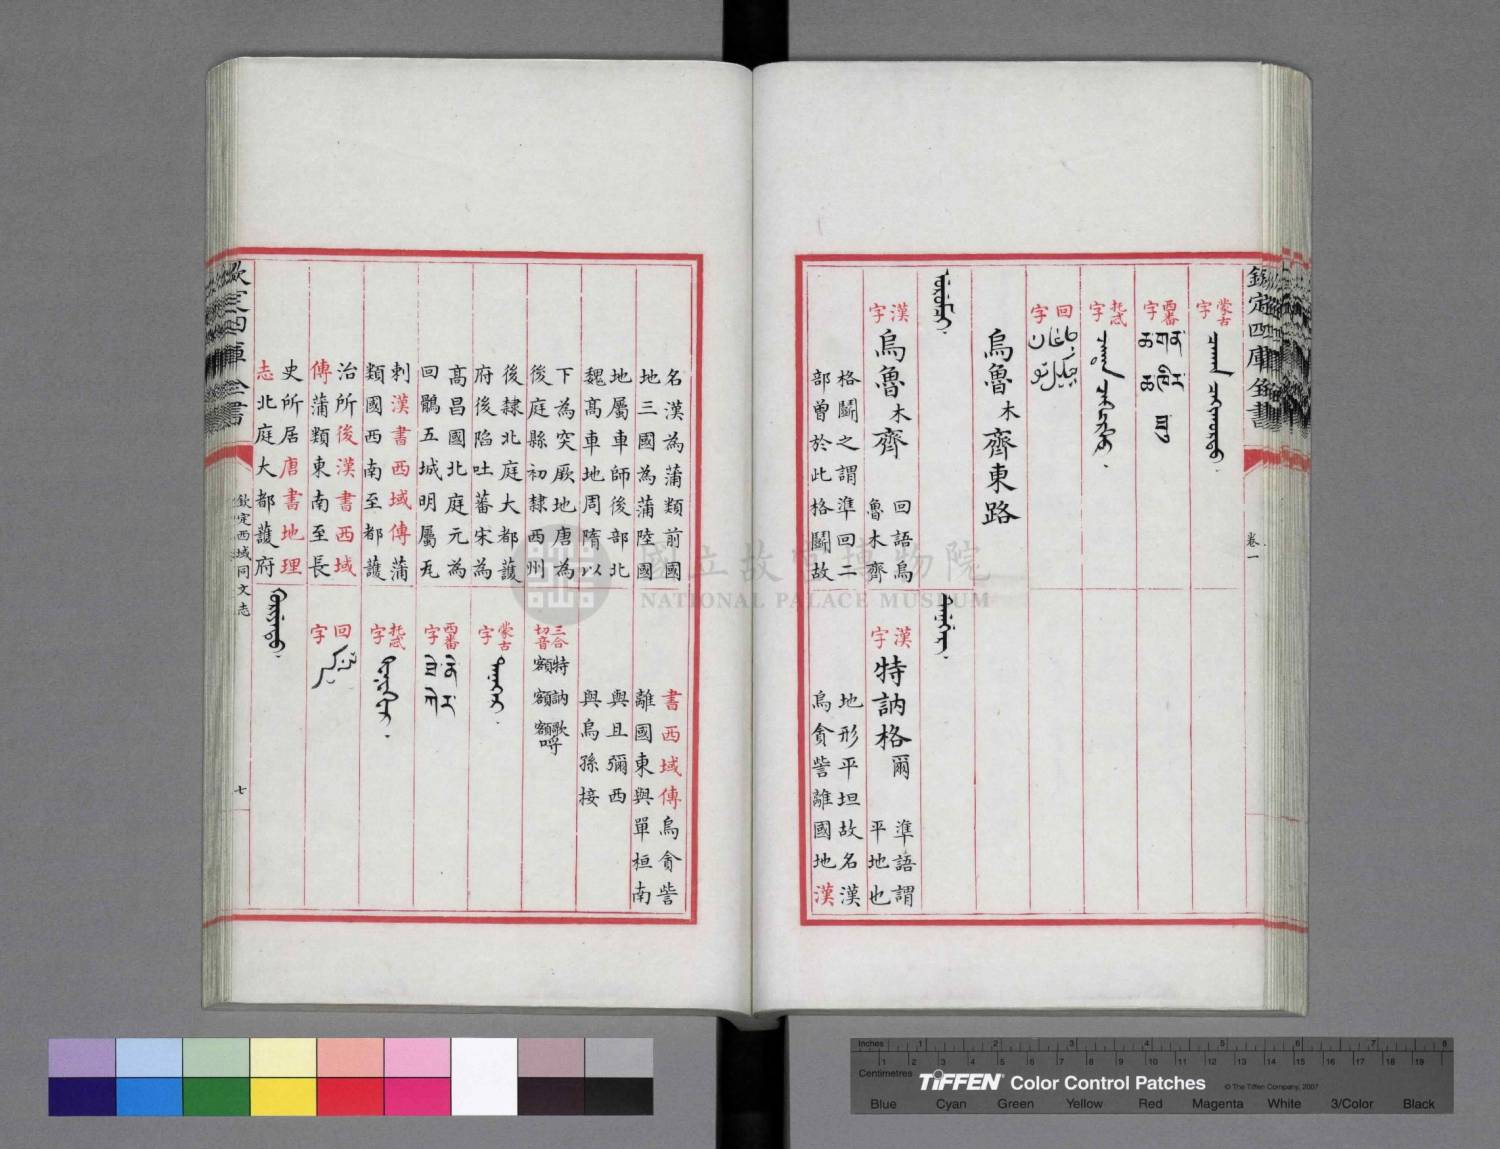 欽定四庫全書
卷一
蒙古字
西番字
托忒字
回字
烏魯木齊東路
漢字
烏魯木齊
回語烏
魯木齊
格鬭之謂準回二
部曾於此格鬭故
漢字
特訥格爾
準語謂
平地也
地形平坦故名漢
烏貪訾離國地漢
名漢為蒲類前國
地三國為蒲陸國
地屬車師後部北
魏高車地周隋以
下為突厥地唐為
後庭縣初隸西州
後隸北庭大都護
府後陷吐蕃宋為
高昌國北庭元為
回鶻五城明屬瓦
剌漢書西域傳蒲
類國西南至都護
治所後漢書西域
傳蒲類東南至長
史所居唐書地理
志北庭大都護府
書西域傳烏貪訾
離國東與單桓南
與且彌西
與烏孫接
三合切音
特額
訥額
歌額呼
蒙古字
西番字
托忒字
回字
欽定四庫全書
欽定西域同文志
七
國立故宮博物院
NATIONAL PALACE MUSEUM
Inches 1 2 3 4 5 6 7 8
Centimetres 1 2 3 4 5 6 7 8 9 10 11 12 13 14 15 16 17 18 19
TIFFEN® Color Control Patches
© The Tiffen Company, 2007
Blue Cyan Green Yellow Red Magenta White 3/Color Black